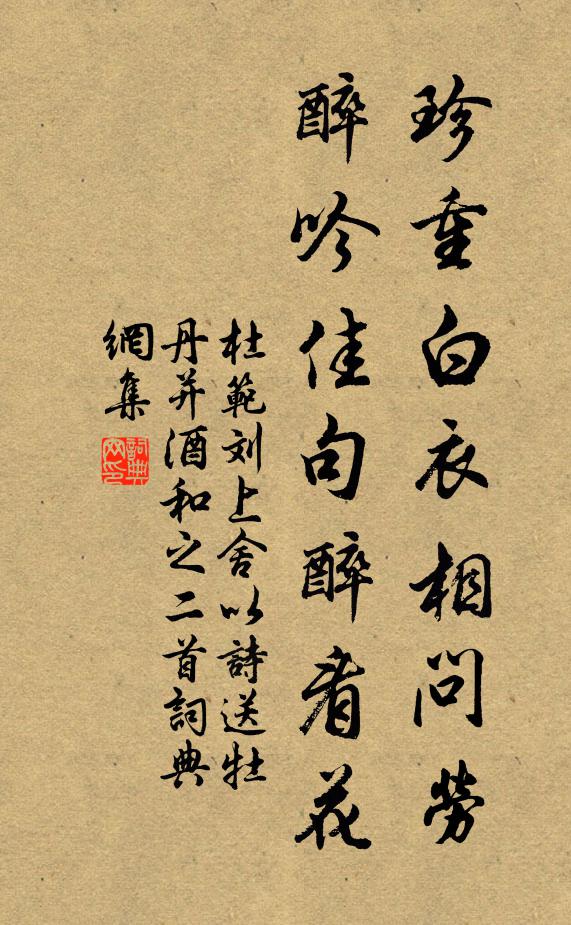 珍重白衣相問勞
醉吟佳句醉看花
杜範刘上舍以詩送牡
丹并酒和之二首詞典
網集
詞典網印